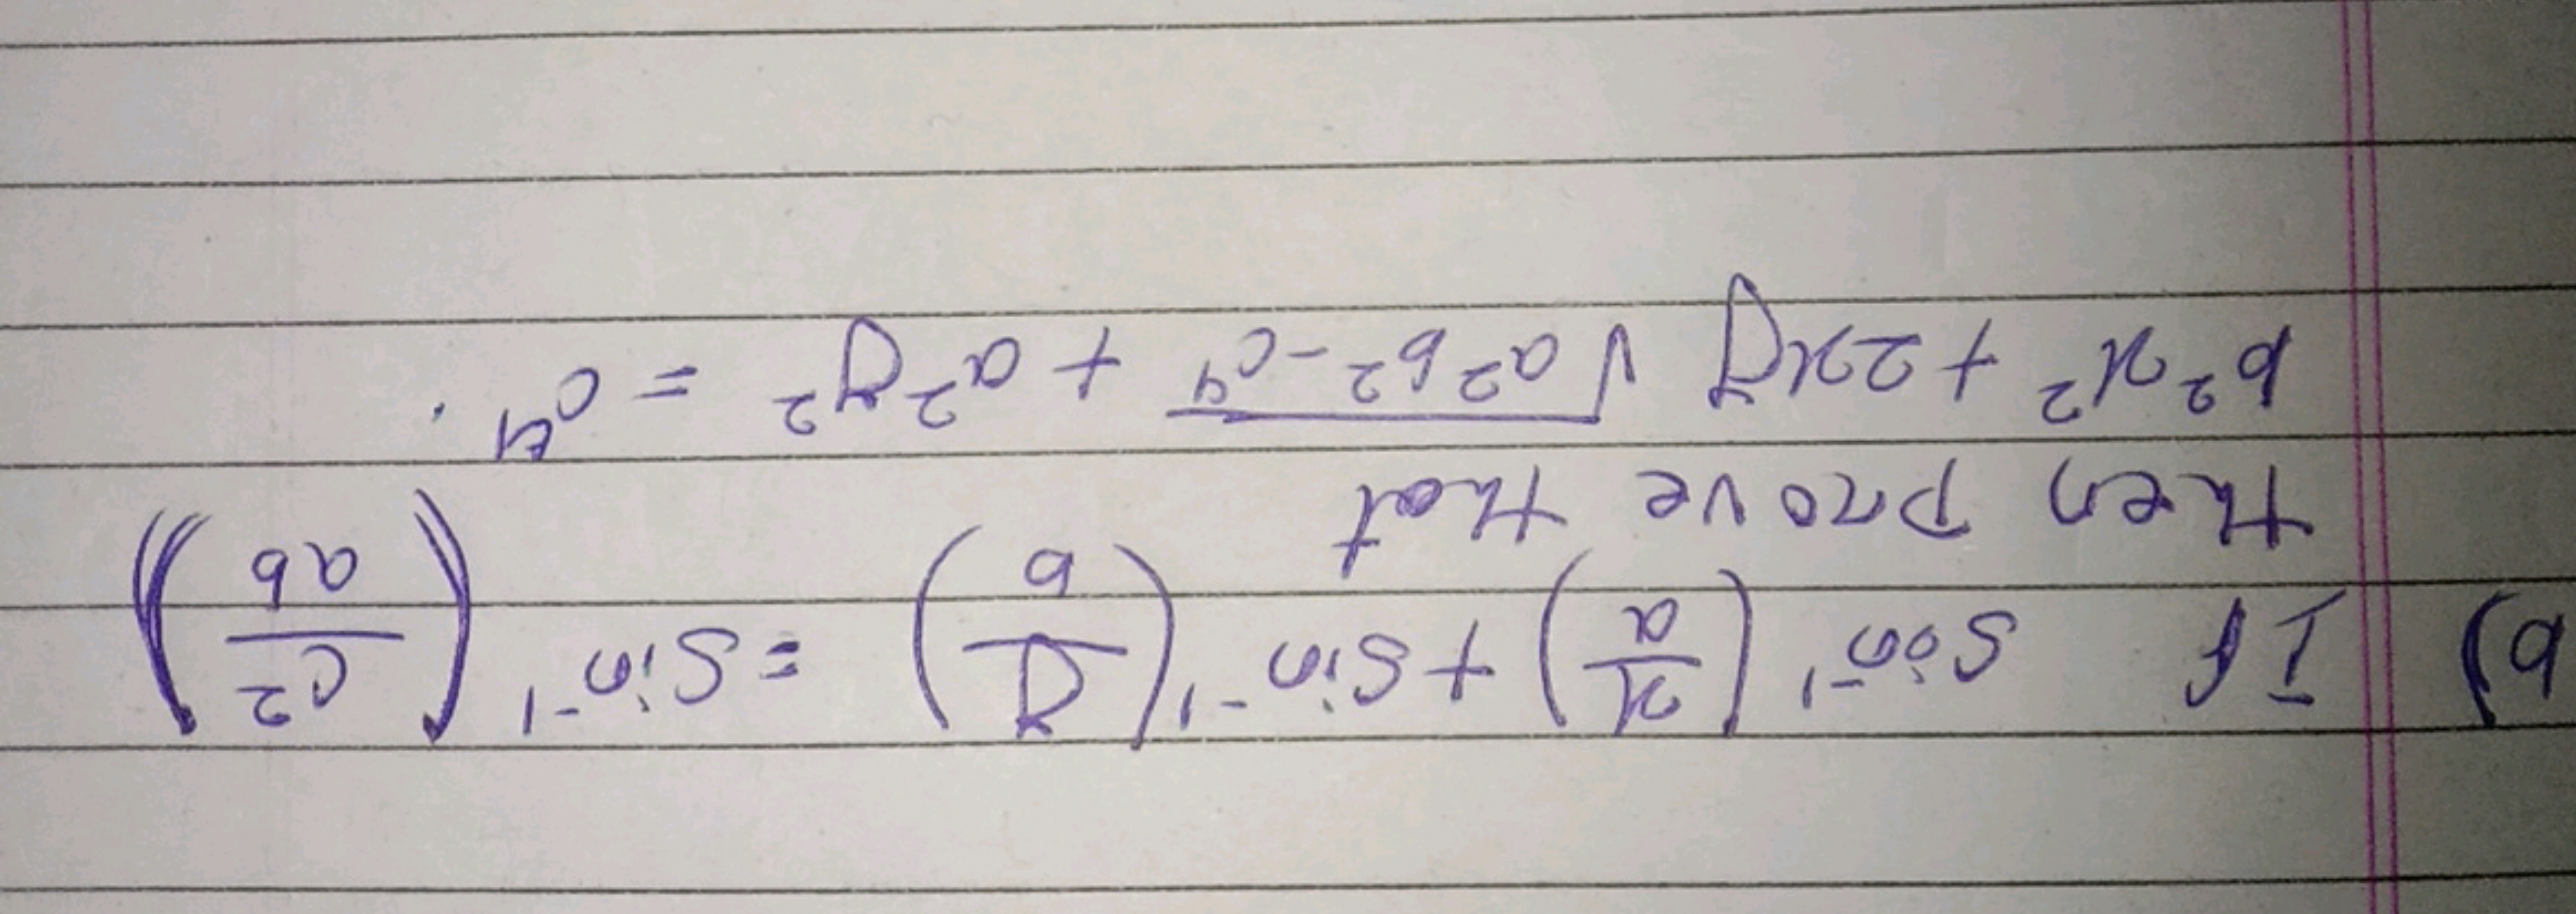 b) If sin⁻¹(x/a) + sin⁻¹(y/b) = sin⁻¹(c²/ab)
then prove that
b²x² + 2xy √a²b²-c⁴ + a²y² = c⁴.